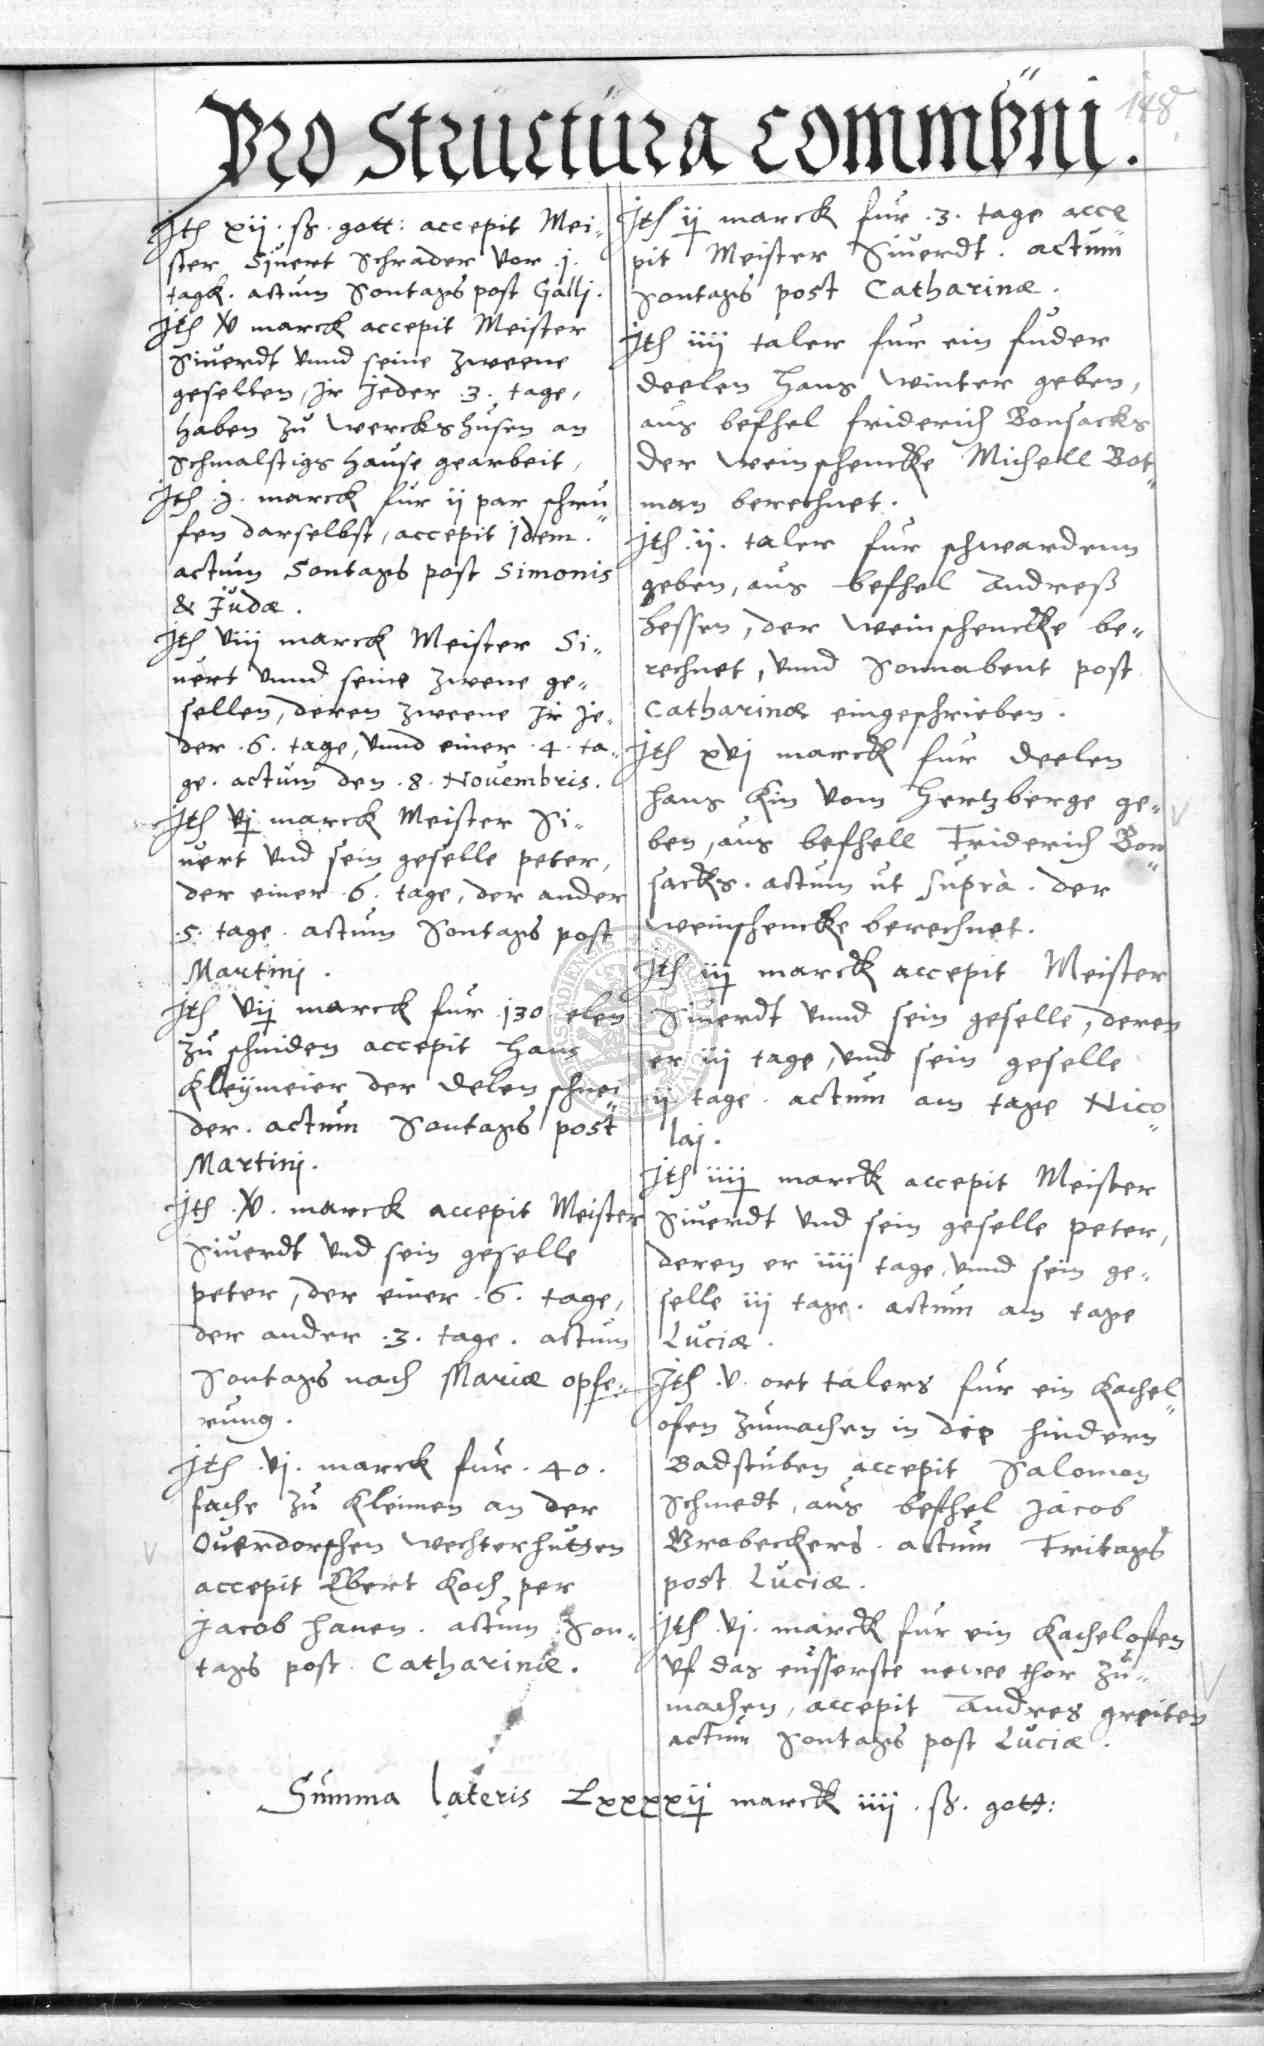 148
Pro Structura commüni.
Jth xij. ß. gott: accepit Mei„
ster Siuert Schrader vor .j.
tagk. actum Sontags post Galli.
Jth v marck accepit Meister
Siuerdt vnnd seine zweene
gesellen, Jr jeder .3. tage,
haben zu Werckshusen an
Schmalstigs hause gearbeit,
Jth .j. marck fur ij par schru„
fen darselbst, accepit idem.
actum Sontags post Simonis
& Judæ.
Jth viij marck Meister Si„
uert vnnd seine zwene ge„
sellen, deren zweene Jr je„
der .6. tage, vnnd einer .4. ta„
ge. actum den .8. Nouembris.
Jth vj marck Meister Si„
uert vnd sein geselle peter,
der einer .6. tage, der ander
.5. tage. actum Sontags post
Martinj.
Jth vij marck fur .130. elen
zu schniden accepit Hans
Kleymeier der delen schnei„
der. actum Sontags post
Martinj.
Jth .v. marck accepit Meister
Siuerdt vnd sein geselle
peter, der einer .6. tage,
der ander .3. tage. actum
Sontags nach Mariæ opfe„
rung.
Jth .vj. marck fur .40.
fache zu kleimen an der
Ouerdorschen wechterhutzen
accepit Ebert Koch per
Jacob Hanen. actum Son„
tags post Catharinæ.
Jth ij marck fur .3. tage acce
pit Meister Siuerdt. actum
Sontags post Catharinæ.
Jth iiij taler fur ein fuder
deelen Hans Winter geben,
aus befhel friderich Bonsacks
der weinschencke Michell Bot„
man berechnet.
Jth .ij. taler fur schwardenn
geben, aus befhel Andreß
Hessen, der weinschencke be„
rechnet, vnnd Sonnabent post
Catharinæ eingeschrieben.
Jth xvj marck fur deelen
Hans Kin vom Hertzberge ge„
ben, aus befhell Friderich Bon„
sacks. actum ut suprà. der
weinschencke berechnet.
Jth iij marck accepit Meister
Siuerdt vnnd sein geselle, deren
er iij tage, vnnd sein geselle
ij tage. actum am tage Nico„
lai.
Jth iiij marck accepit Meister
Siuerdt vnd sein geselle peter,
deren er iiij tage, vnnd sein ge„
selle iij tage. actum am tage
Luciæ.
Jth .v. ort talers fur ein Kachel„
ofen zumachen in die hindern
Badstuben accepit Salomon
Schmedt, aus befhel Jacob
Brobeckers. actum Fritags
post Luciæ.
Jth .vj. marck fur ein Kachelofen
vf das eusserste newe thor zu„
machen, accepit Andres greiten
actum Sontags post Luciæ.
Summa lateris Lxxxxij marck iiij .ß. gott: